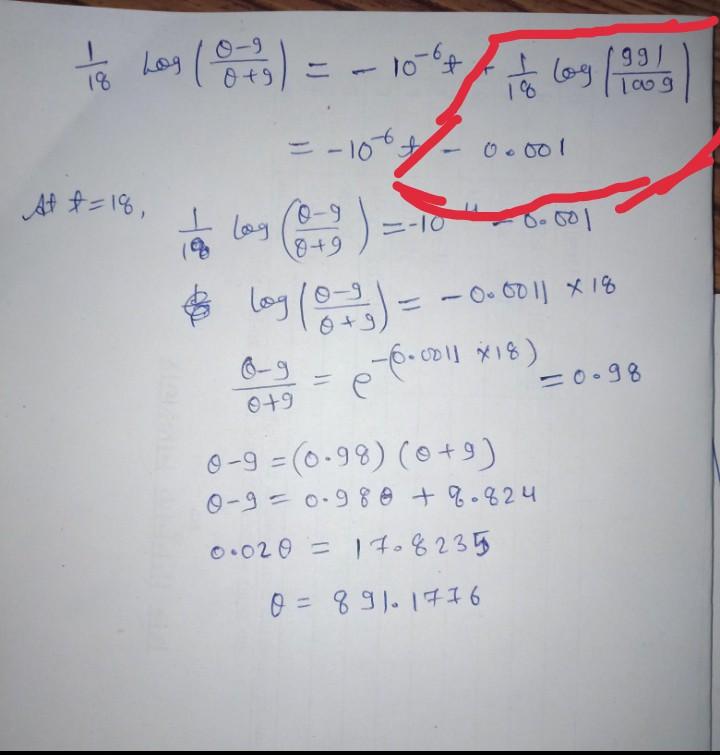 1/18 log(θ-9/θ+9) = - 10^-6 t + 1/18 log(991/1009)
= -10^-6 t - 0.001
At t=18, 1/18 log(θ-9/θ+9) = -10^-4 - 0.001
log(θ-9/θ+9) = -0.0011 × 18
θ-9/θ+9 = e^-(0.0011 × 18) = 0.98
θ-9 = (0.98) (θ+9)
θ-9 = 0.98θ + 8.824
0.02θ = 17.8235
θ = 891.1776